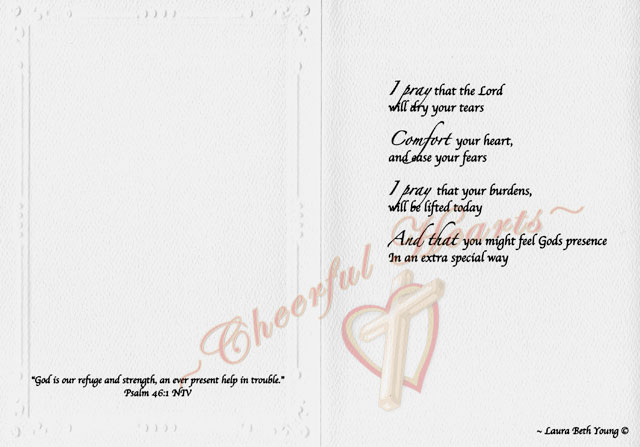 I pray that the Lord
will dry your tears
Comfort your heart,
and ease your fears
I pray that your burdens,
will be lifted today
And that you might feel Gods presence
In an extra special way
~Cheerful Hearts~
"God is our refuge and strength, an ever present help in trouble."
Psalm 46:1 NIV
~ Laura Beth Young ©